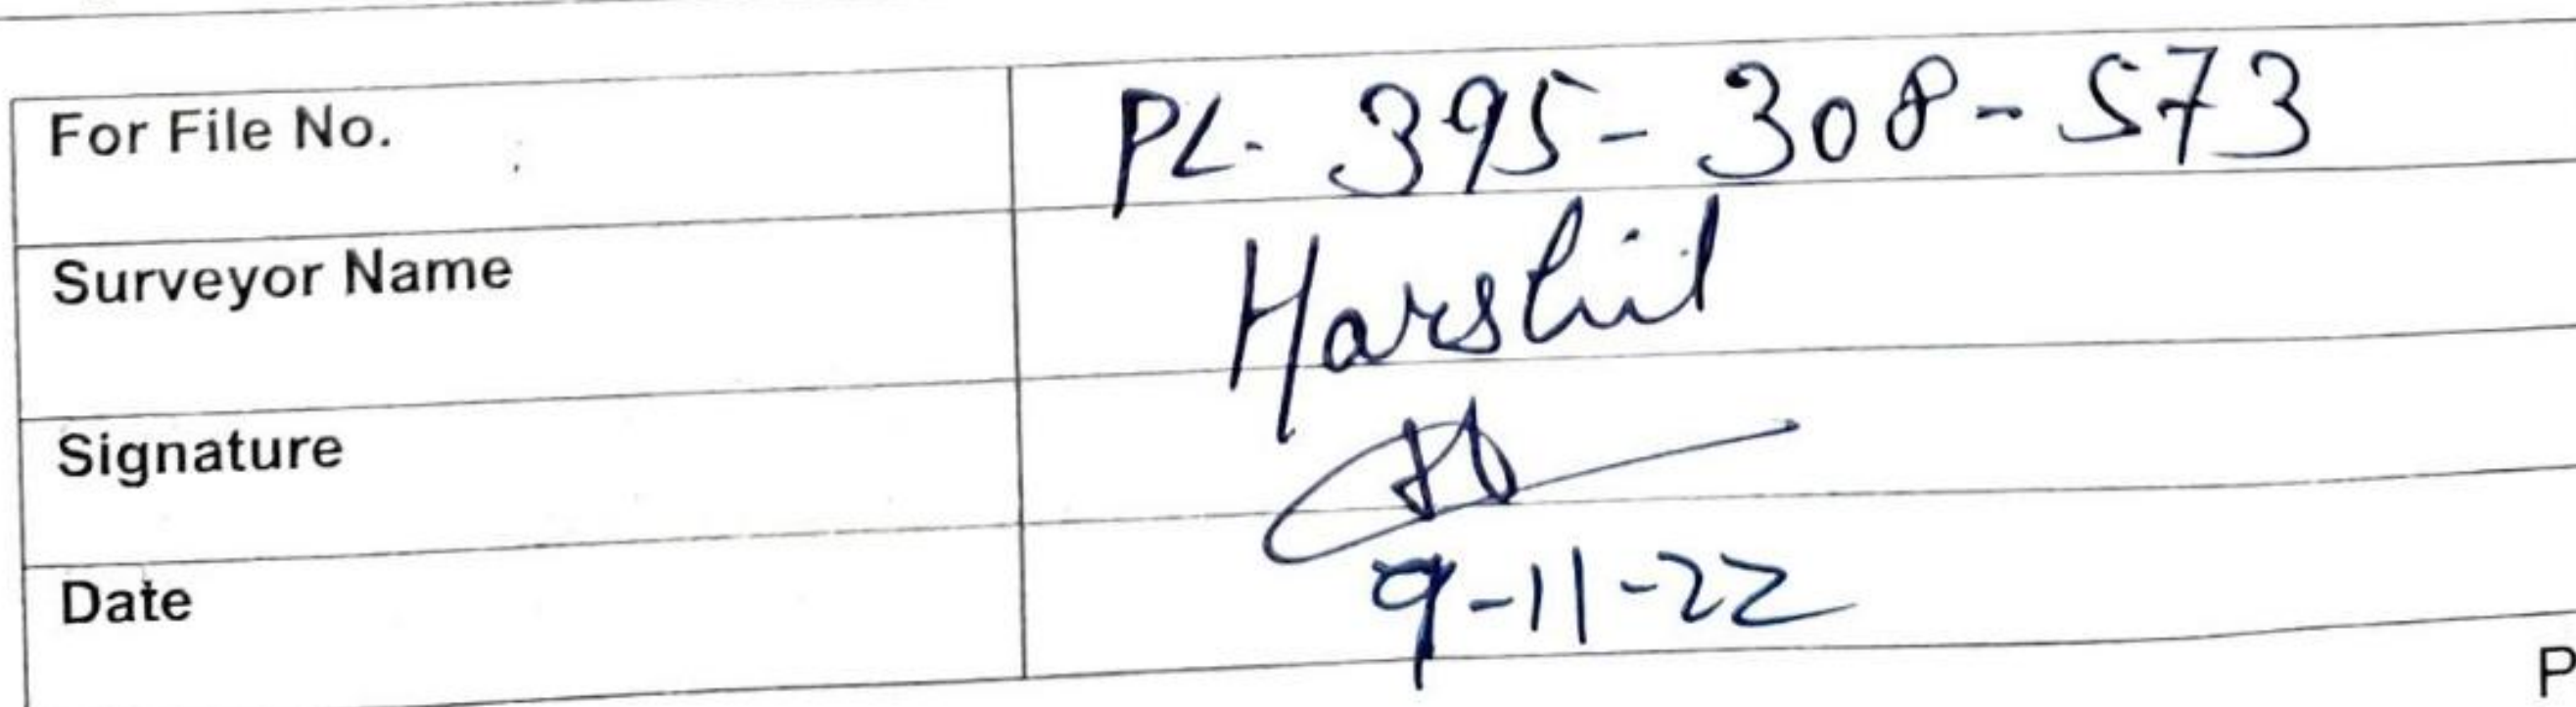 For File No. PL- 395-308-573
Surveyor Name Harshit
Signature
Date 9-11-22
P